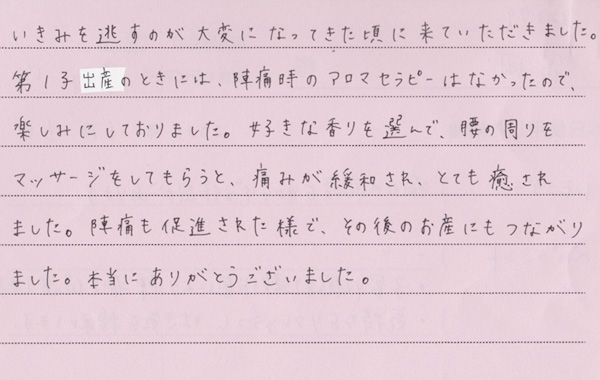 いきみを逃すのが大変になってきた頃に来ていただきました。
第1子出産のときには、陣痛時のアロマセラピーはなかったので、
楽しみにしておりました。好きな香りを選んで、腰の周りを
マッサージをしてもらうと、痛みが緩和され、とても癒され
ました。陣痛も促進された様で、その後のお産にもつながり
ました。本当にありがとうございました。